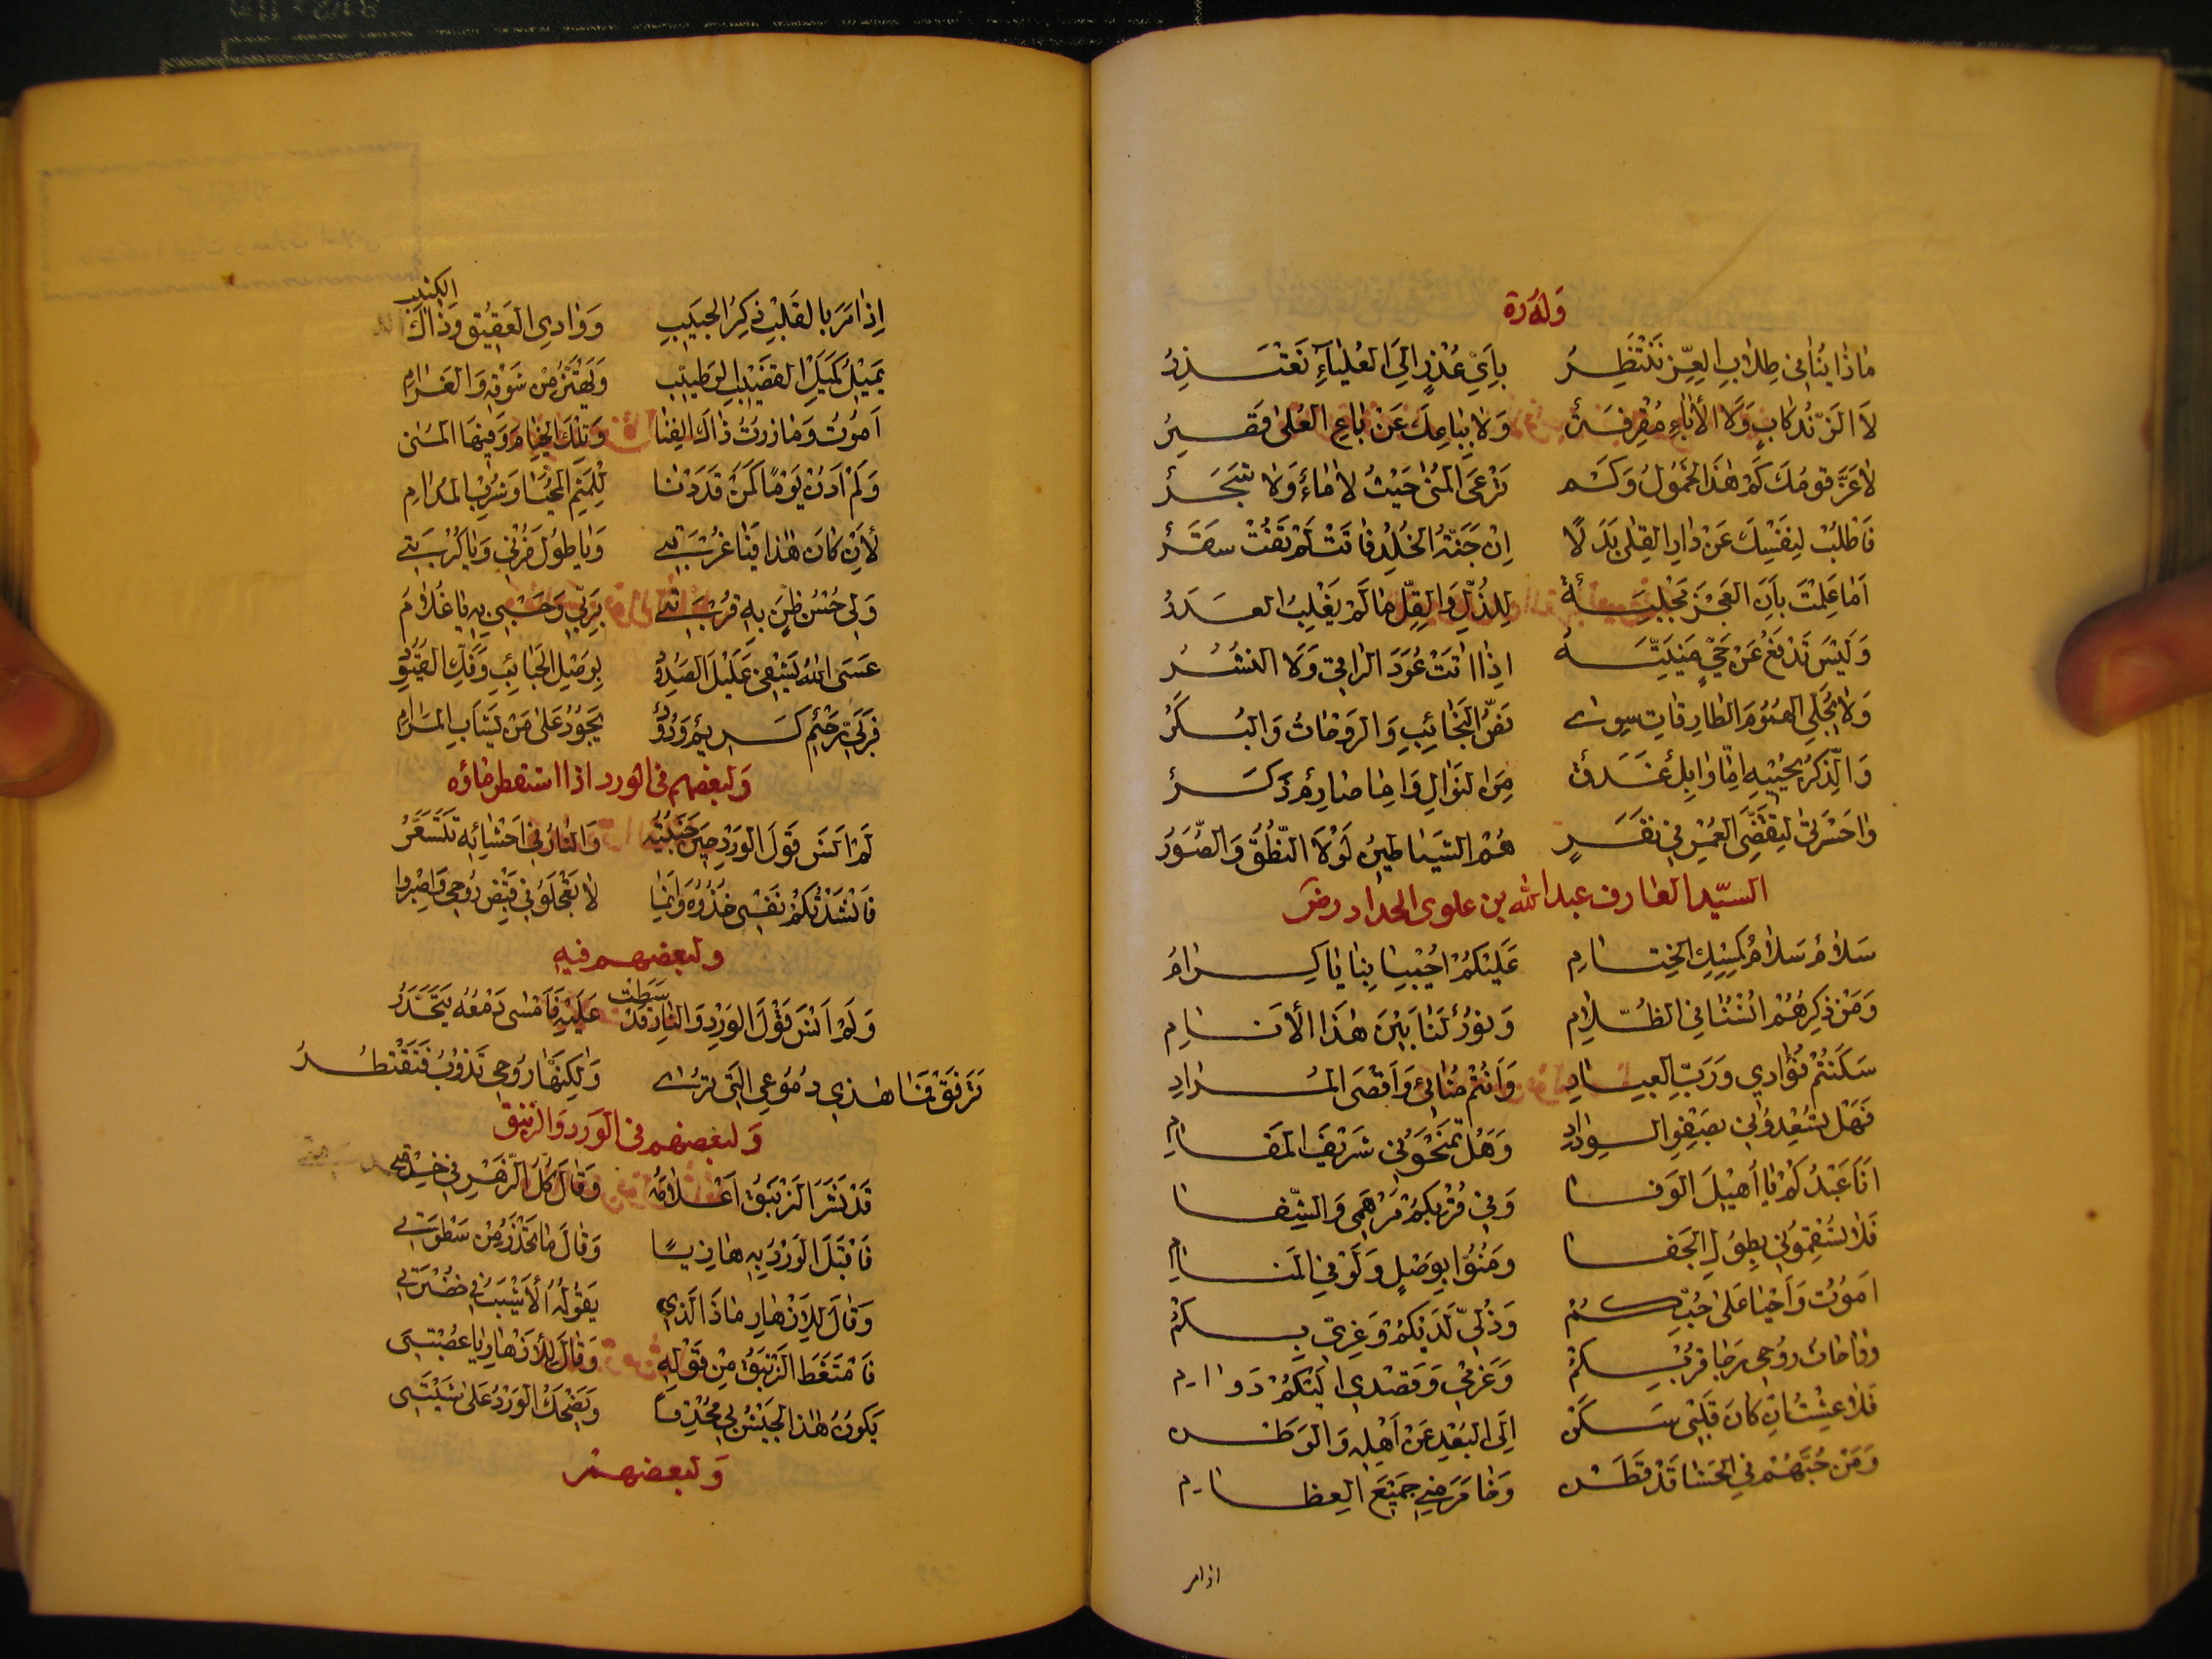 وَلَهُ رَه
مَاذَا بِنَا فِي طِلَابِ العِزِّ نَنْتَظِرُ بِأَيِّ عُذْرٍ إِلَى العَلْيَاءِ نَعْتَذِرُ
لَا الزَّنْدُ كَابٍ وَلَا الآبَاءُ مُقْرِفَةٌ وَلَا بِبَاعِكَ عَنْ بَاعِ العُلَى قَصِيرُ
لَا عَزَّ قومُكَ كَمْ هٰذَا الخُمُولُ وَكَمْ تَرْعَى المُنَى حَيْثُ لَا مَاءٌ وَلَا شَجَرُ
فَاطْلُبْ لِنَفْسِكَ عَنْ دَارِ القِلَى بَدَلًا إِنْ جَنَّةُ الخُلْدِ فَاتَتْ لَمْ تَفُتْ سَقَرُ
أَمَا عَلِمْتَ بِأَنَّ العَجْزَ مَجْلَبَةٌ لِلذُّلِّ وَالقِلِّ مَا لَمْ يَغْلِبِ القَدَرُ
وَلَيْسَ تَدْفَعُ عَنْ حَيٍّ مَنِيَّتَهُ إِذَا أَتَتْ عُوَذُ الرَّاقِي وَلَا النُّشُرُ
وَلَا يُجَلِّي الهُمُومَ الطَّارِقَاتِ سِوَى نَصُّ النَّجَائِبِ وَالرَّوْحَاتُ وَالبُكَرُ
وَالذِّكْرُ يُحْيِيهِ إِمَّا وَابِلٌ غَدَقٌ مِنَ النَّوَالِ وَإِمَّا صَارِمٌ ذَكَرُ
وَاحَسْرَتَى لِتَقَضِّي العُمْرِ فِي نَفَرٍ هُمُ الشَّيَاطِينُ لَوْلَا النُّطْقُ وَالصُّوَرُ
السيّد العارف عبد الله بن علوي الحداد رض
سَلَامٌ سَلَامٌ كَمِسْكِ الخِتَامِ عَلَيْكُمْ أُحَيْبَابَنَا يَا كِرَامُ
وَمَنْ ذِكْرُهُمْ أُنْسُنَا فِي الظَّلَامِ وَنُورٌ لَنَا بَيْنَ هٰذَا الأَنَامِ
سَكَنْتُمْ فُؤَادِي وَرَبِّ العِبَادِ وَأَنْتُمْ مُنَائِي وَأَقْصَى المُرَادِ
فَهَلْ تُسْعِدُونِي بِصَفْوِ الوِدَادِ وَهَلْ تَمْنَحُونِي شَرِيفَ المَقَامِ
أَنَا عَبْدُكُمْ يَا أُهَيْلَ الوَفَا وَفِي قُرْبِكُمْ مَرْهَمِي وَالشِّفَا
فَلَا تُسْقِمُونِي بِطُولِ الجَفَا وَمُنُّوا بِوَصْلٍ وَلَوْ فِي المَنَامِ
أَمُوتُ وَأَحْيَا عَلَى حُبِّكُمْ وَذُلِّي لَدَيْكُمْ وَعِزِّي بِكُمْ
وَرَاحَاتُ رُوحِي رَجَا قُرْبِكُمْ وَعَزْمِي وَقَصْدِي إِلَيْكُمْ دَوَامِ
فَلَا عِشْتُ إِنْ كَانَ قَلْبِي سَكَنْ إِلَى البُعْدِ عَنْ أَهْلِهِ وَالوَطَنْ
وَمَنْ حُبُّهُمْ فِي الحَشَا قَدْ قَطَنْ وَخَامَرَ مِنِّي جَمِيعَ العِظَامِ
اذا مر
إِذَا مَرَّ بِالقَلْبِ ذِكْرُ الحَبِيبِ وَوَادِي العَقِيقِ وَذَاكَ الكَثِيبِ
يَمِيلُ كَمَيْلِ القَضِيبِ الرَّطِيبِ وَيَهْتَزُّ مِنْ شَوْقِهِ وَالغَرَامِ
أَمُوتُ وَمَا زُرْتُ ذَاكَ الفِنَا وَتِلْكَ الخِيَامَ وَفِيهَا المُنَى
وَلَمْ أَدْنُ يَوْمًا كَمَنْ قَدْ دَنَا لِلَثْمِ المُحَيَّا وَشُرْبِ المُدَامِ
لَئِنْ كَانَ هٰذَا فَيَا غُرْبَتِي وَيَا طُولَ حُزْنِي وَيَا كُرْبَتِي
وَلِي حُسْنُ ظَنٍّ بِهِ قُرْبَتِي بِرَبِّي وَحَسْبِي بِهِ يَا غُلَامِ
عَسَى اللهُ يَشْفِي غَلِيلَ الصُّدُودْ بِوَصْلِ الحَبَائِبِ وَفَكِّ القُيُودْ
فَرَبِّي رَحِيمٌ كَرِيمٌ وَدُودْ يَجُودُ عَلَى مَنْ يَشَا بِالمَرَامِ
وَلبعضهم في الورد اذا استقطر ماؤه
لَمْ أَنْسَ قَوْلَ الوَرْدِ حِينَ جَنَيْتُهُ وَالنَّارُ فِي أَحْشَائِهِ تَتَسَعَّرُ
نَاشَدْتُكُمْ نَفْسِي خُذُوهَا وَإِنَّمَا لَا تَعْجَلُوا فِي قَبْضِ رُوحِي وَاصْبِرُوا
ولبعضهم فيه
وَلَمْ أَنْسَ قَوْلَ الوَرْدِ وَالنَّارُ قَدْ سَطَتْ عَلَيْهِ فَأَمْسَى دَمْعُهُ يَتَحَدَّرُ
تَرَفَّقْ فَمَا هٰذِي دُمُوعِي الَّتِي تَرَى وَلٰكِنَّهَا رُوحِي تَذُوبُ فَتَقْطُرُ
وَلبعضهم في الورد وَالزنبق
قَدْ نَشَرَ الزَّنْبَقُ أَعْلَامَهُ وَقَالَ كُلُّ الزَّهْرِ فِي خِدْمَتِي
فَأَقْبَلَ الوَرْدُ بِهِ هَازِئًا وَقَالَ مَا تَحْذَرُ مِنْ سَطْوَتِي
وَقَالَ لِلأَزْهَارِ مَاذَا الَّذِي يَقُولُهُ الأَشْيَبُ فِي حَضْرَتِي
فَامْتَعَضَ الزَّنْبَقُ مِنْ قَوْلِهِ وَقَالَ لِلأَزْهَارِ يَا عُصْبَتِي
يَكُونُ هٰذَا الجَيْشُ بِي مُحْدِقًا وَيَضْحَكُ الوَرْدُ عَلَى شَيْبَتِي
وَلبعضهم